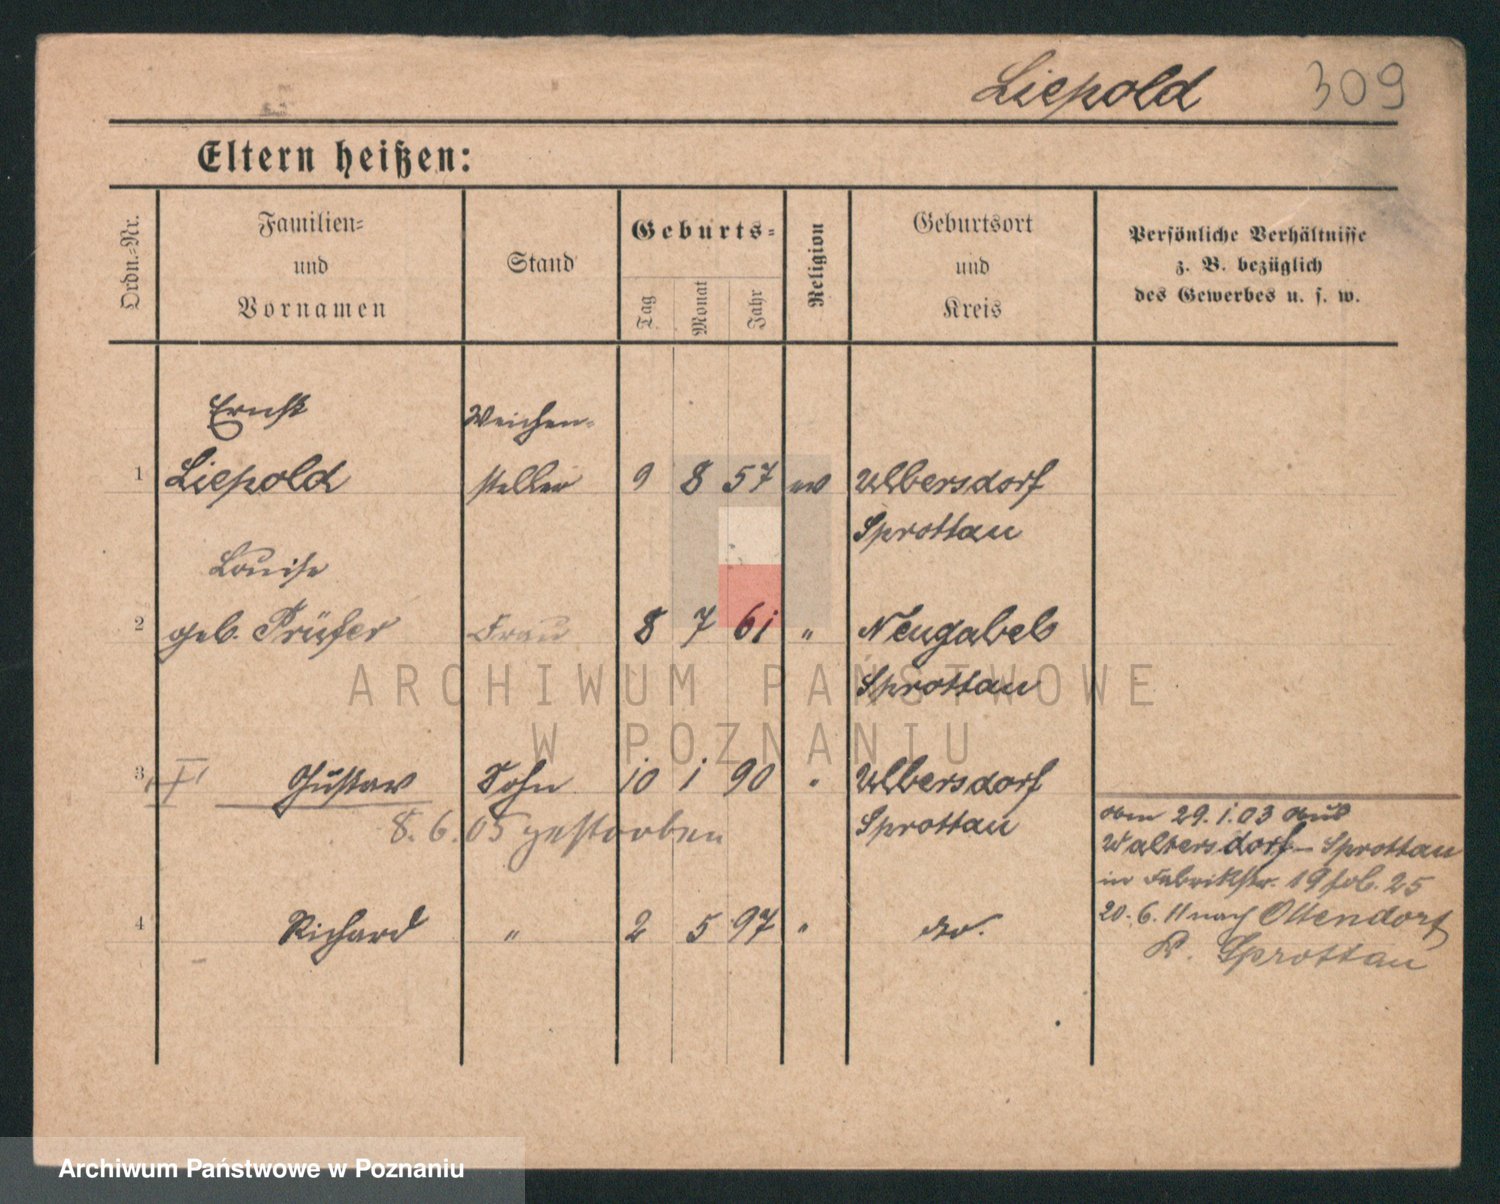 Liepold 309
Eltern heißen:
Ordn.=Nr.
Familien=
und
Vornamen
Stand
Geburts=
Tag
Monat
Jahr
Religion
Geburtsort
und
Kreis
Persönliche Verhältnisse
z. B. bezüglich
des Gewerbes u. s. w.
Ernst Weichen-
1 Liepold steller 9 8 57 ev Ulbersdorf
Sprottau
Louise
2 geb. Prüfer Frau 8 7 61 " Neugabel
Sprottau
ARCHIWUM PAŃSTWOWE
W POZNANIU
3 Gustav Sohn 10 1 90 " Ulbersdorf
8.6.05 gestorben Sprottau
vom 29.1.03 aus
Waltersdorf - Sprottau
in Fabrikstr. 19 25
20.6.11 nach Ottendorf
K. Sprottau
4 Richard " 2 5 97 " do.
Archiwum Państwowe w Poznaniu